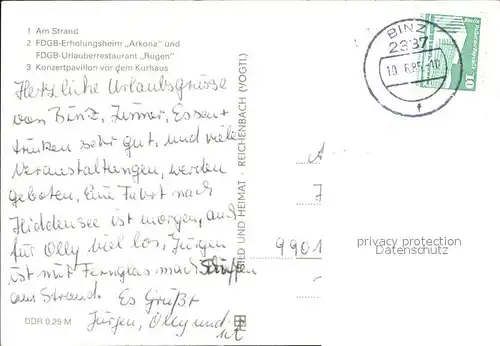 1 Am Strand
2 FDGB-Erholungsheim „Arkona" und
FDGB-Urlauberrestaurant „Rügen"
3 Konzertpavillon vor dem Kurhaus
Herzliche Urlaubsgrüsse
von Binz, Zimmer, Essen +
trinken sehr gut, und viele
Veranstaltungen, werden
geboten, Eine Fahrt nach
Hiddensee ist morgen, auch
für Olly viel los, Jürgen
ist mit Fernglas nach Schiffen
am Strand. Es Grüßt
Jürgen, Olly und
DDR 0,25 M
BILD UND HEIMAT · REICHENBACH (VOGTL)
BINZ
2337
10
DDR
A
J
9901
privacy protection
Datenschutz